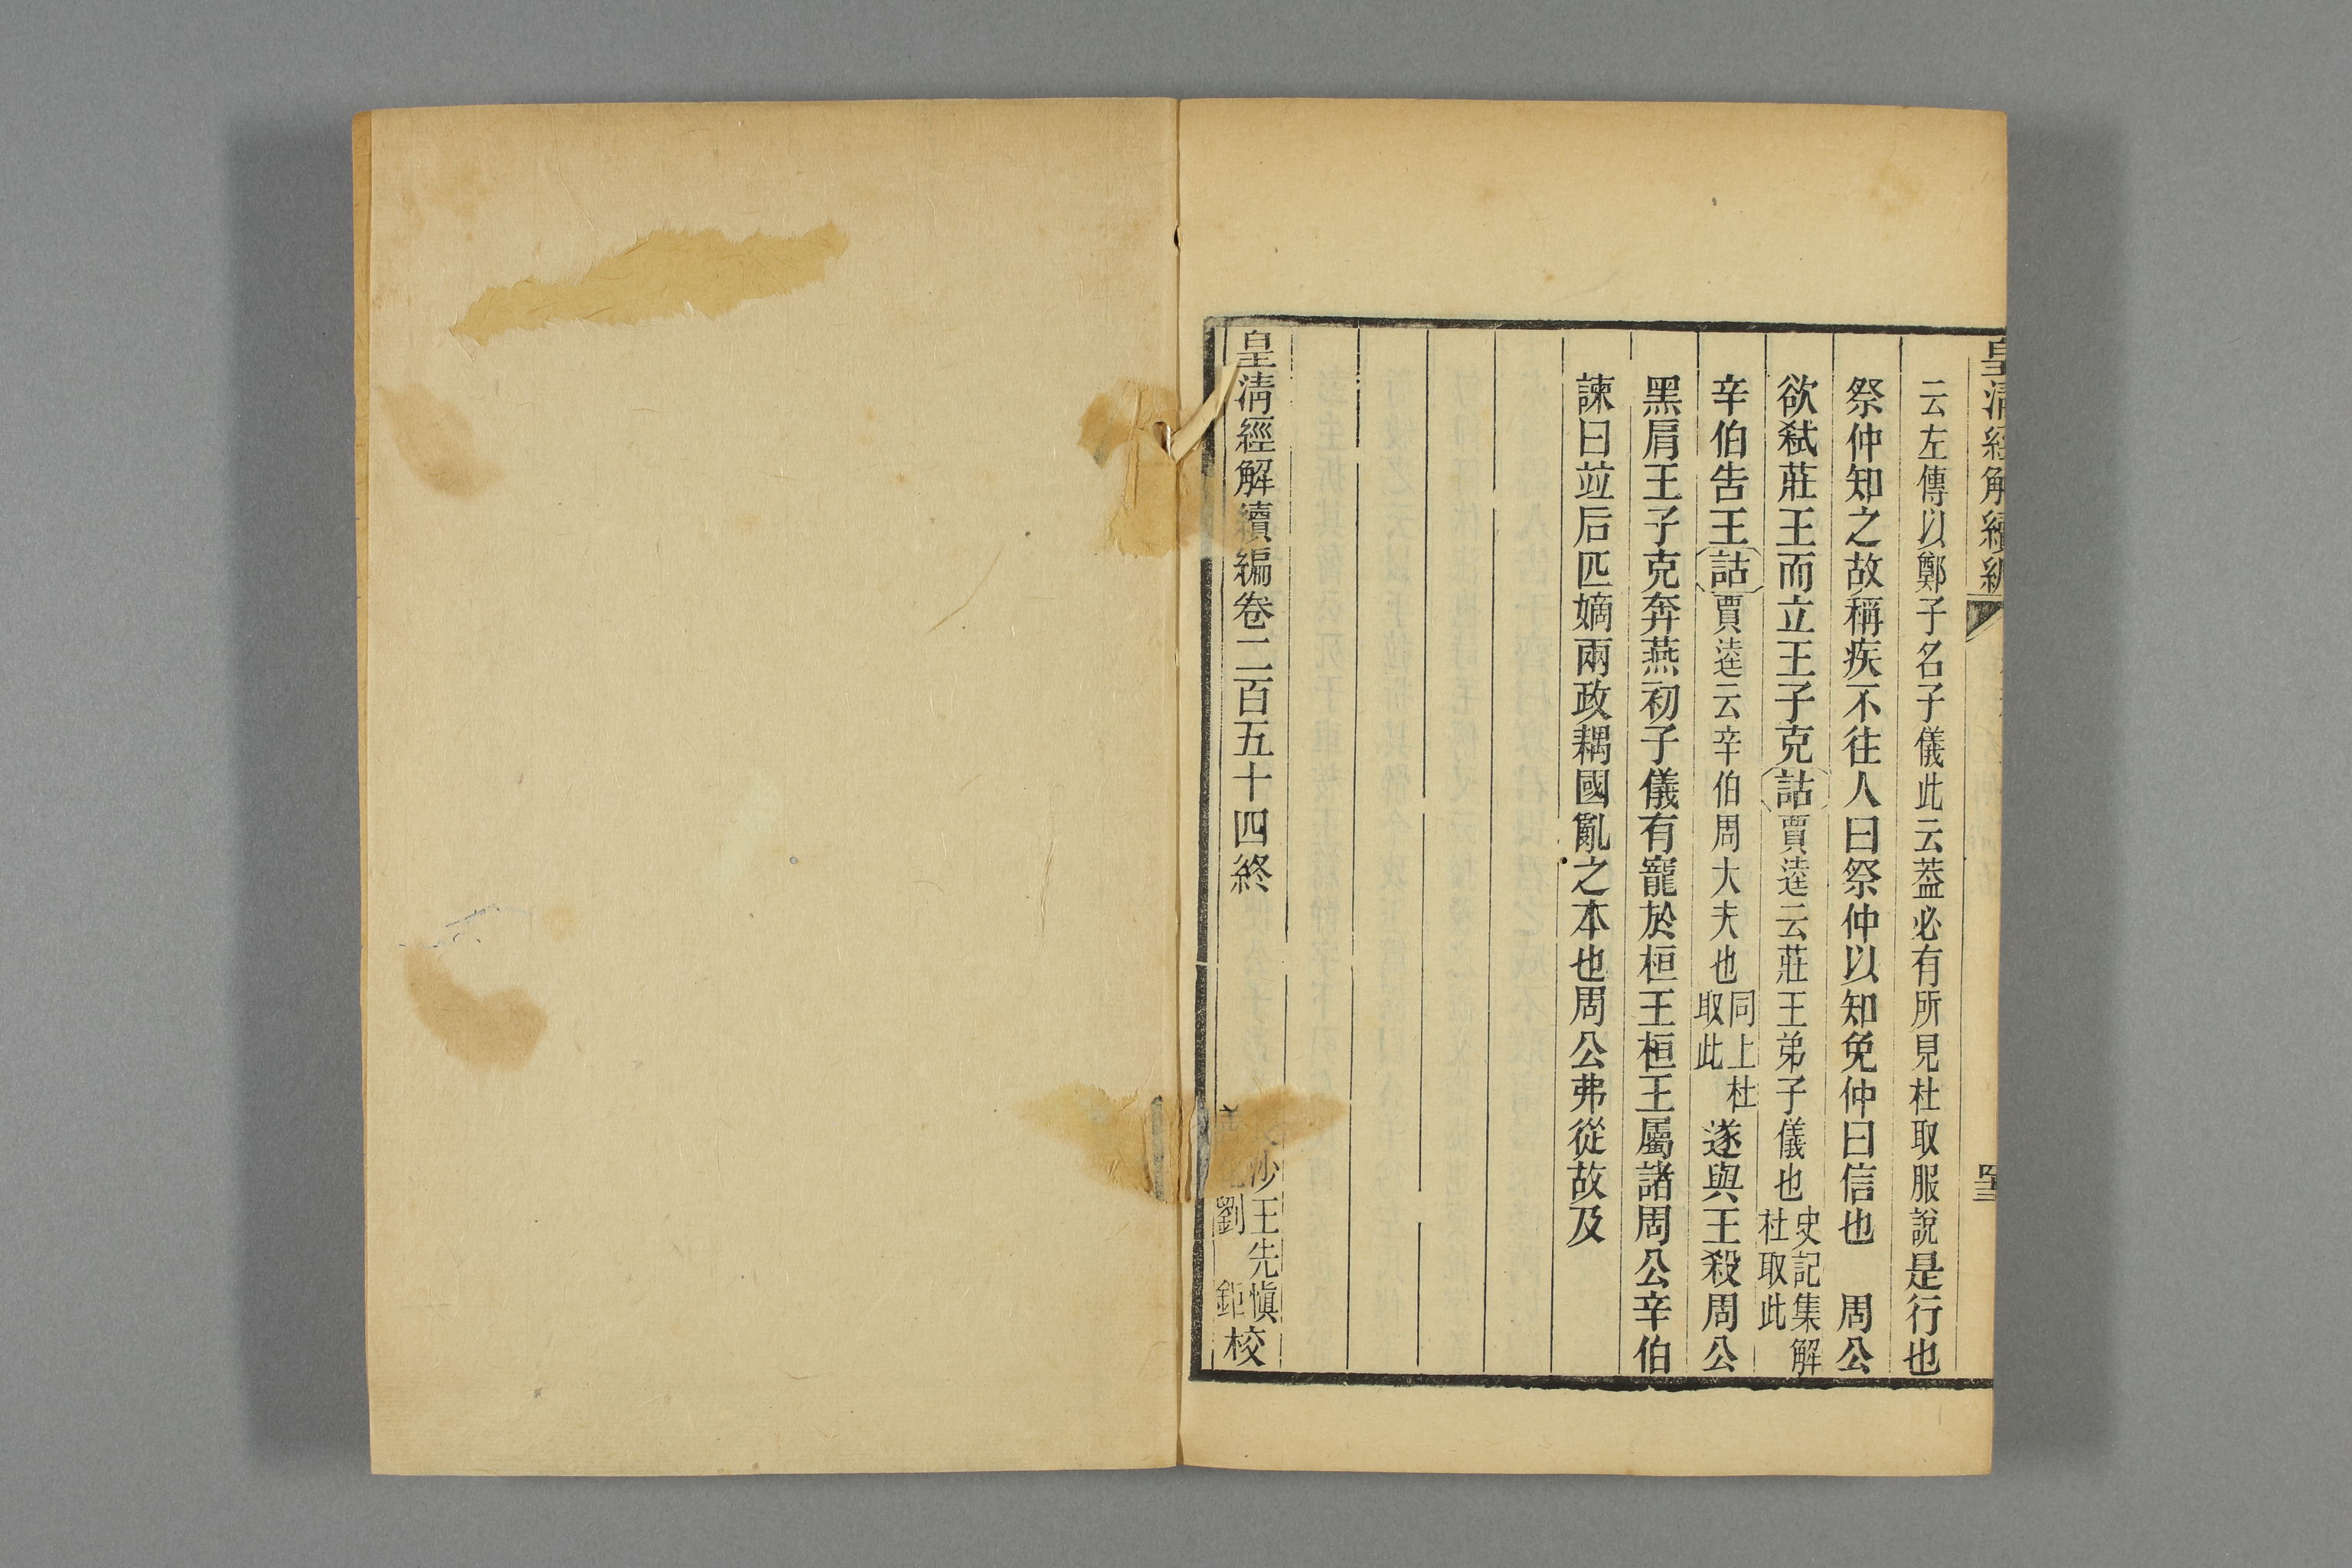 皇清經解續編
云左傳以鄭子名子儀此云葢必有所見杜取服說是行也
祭仲知之故稱疾不往人曰祭仲以知免仲曰信也　周公
欲弑莊王而立王子克詁賈逵云莊王弟子儀也史記集解杜取此
辛伯告王詁賈逵云辛伯周大夫也同上杜取此遂與王殺周公
黑肩王子克奔燕初子儀有寵於桓王桓王屬諸周公辛伯
諫曰竝后匹嫡兩政耦國亂之本也周公弗從故及
皇清經解續編卷二百五十四終
沙王先愼
劉　鉅校